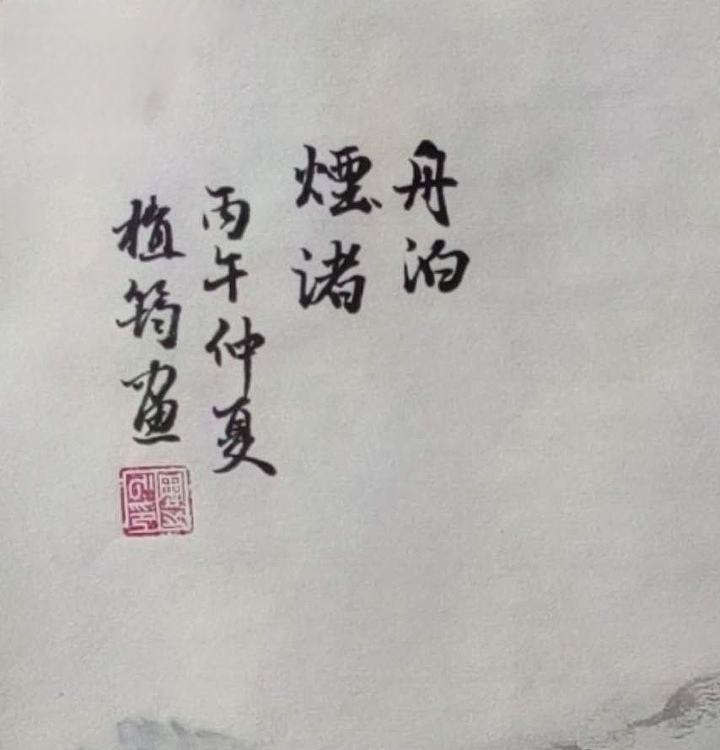 舟泊
煙渚
丙午仲夏
植筠畫